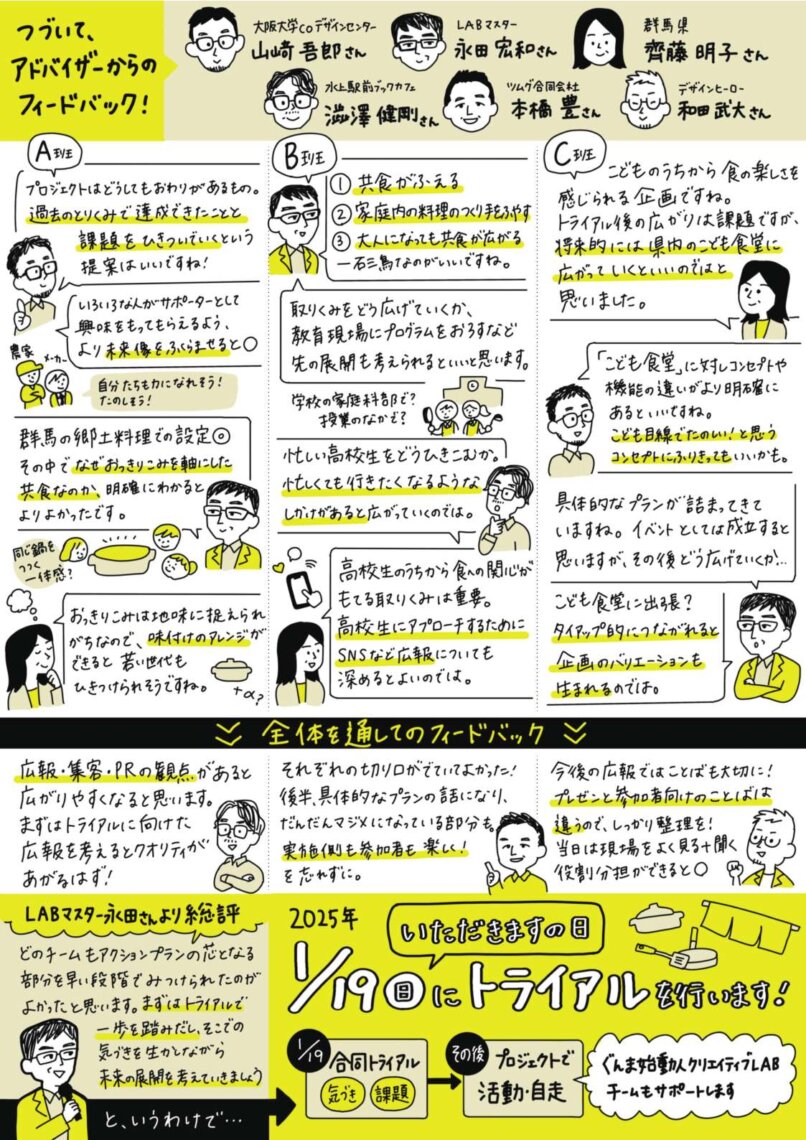 つづいて、
アドバイザーからの
フィードバック!
大阪大学COデザインセンター
山崎 吾郎さん
LABマスター
永田 宏和さん
群馬県
齊藤 明子さん
水上駅前ブックカフェ
澁澤 健剛さん
ツムグ合同会社
本橋 豊さん
デザインヒーロー
和田 武大さん
A班
プロジェクトはどうしてもおわりがあるもの。
過去のとりくみで達成できたことと
課題をひきついでいくという
提案はいいですね!
いろいろな人がサポーターとして
興味をもってもらえるよう、
より未来像をふくらませると○
農家
メーカー
自分たちも力になれそう!
たのしそう!
群馬の郷土料理での設定◎
その中でなぜおっきりこみを軸にした
共食なのか、明確にわかると
よりよかったです。
同じ鍋を
つつく
一体感?
おっきりこみは地味に捉えられ
がちなので、味付けのアレンジが
できると若い世代も
ひきつけられそうですね。
+α?
B班
① 共食がふえる
② 家庭内の料理のつくり手をふやす
③ 大人になっても共食が広がる
一石三鳥なのがいいですね。
取りくみをどう広げていくか、
教育現場にプログラムをおろすなど
先の展開も考えられるといいと思います。
学校の家庭科部で?
授業のなかで?
忙しい高校生をどうひきこむか。
忙しくても行きたくなるような
しかけがあると広がっていくのでは。
高校生のうちから食への関心が
もてる取りくみは重要。
高校生にアプローチするために
SNSなど広報についても
深めるとよいのでは。
C班
こどものうちから食の楽しさを
感じられる企画ですね。
トライアル後の広がりは課題ですが、
将来的には県内のこども食堂に
広がっていくといいのではと
思いました。
「こども食堂」に対しコンセプトや
機能の違いがより明確に
あるといいですね。
こども目線でたのしい!と思う
コンセプトにふりきってもいいかも。
具体的なプランが詰まってきて
いますね。イベントとしては成立すると
思いますが、その後どう広げていくか…
こども食堂に出張?
タイアップ的につながれると
企画のバリエーションも
生まれるのでは。
全体を通してのフィードバック
広報・集客・PRの観点があると
広がりやすくなると思います。
まずはトライアルに向けた
広報を考えるとクオリティが
あがるはず!
それぞれの切り口がでていてよかった!
後半、具体的なプランの話になり、
だんだんマジメになっている部分も。
実施側も参加者も楽しく!
を忘れずに。
今後の広報ではことばも大切に!
プレゼンと参加者向けのことばは
違うので、しっかり整理を!
当日は現場をよく見る+聞く
役割分担ができると○
LABマスター永田さんより総評
どのチームもアクションプランの芯となる
部分を早い段階でみつけられたのが
よかったと思います。まずはトライアルで
一歩を踏みだし、そこでの
気づきを生かしながら
未来の展開を考えていきましょう
と、いうわけで…
2025年
いただきますの日
1/19日にトライアルを行います!
1/19
合同トライアル
気づき
課題
その後
プロジェクトで
活動・自走
ぐんま始動人クリエイティブLAB
チームもサポートします